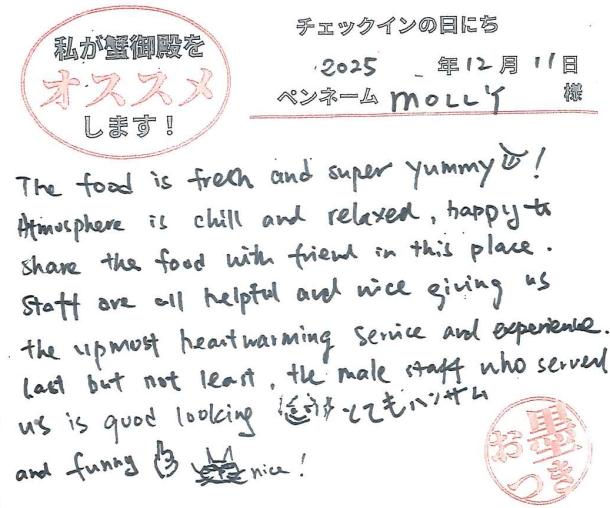 私が蟹御殿を
オススメ
します！
チェックインの日にち
2025 年12月11日
ペンネーム MOLLY 様
The food is fresh and super yummy!
Atmosphere is chill and relaxed, happy to
share the food with friend in this place.
Staff are all helpful and nice giving us
the upmost heartwarming service and experience.
Last but not least, the male staff who served
us is good looking とてもハンサム
and funny nice!
お墨
つき